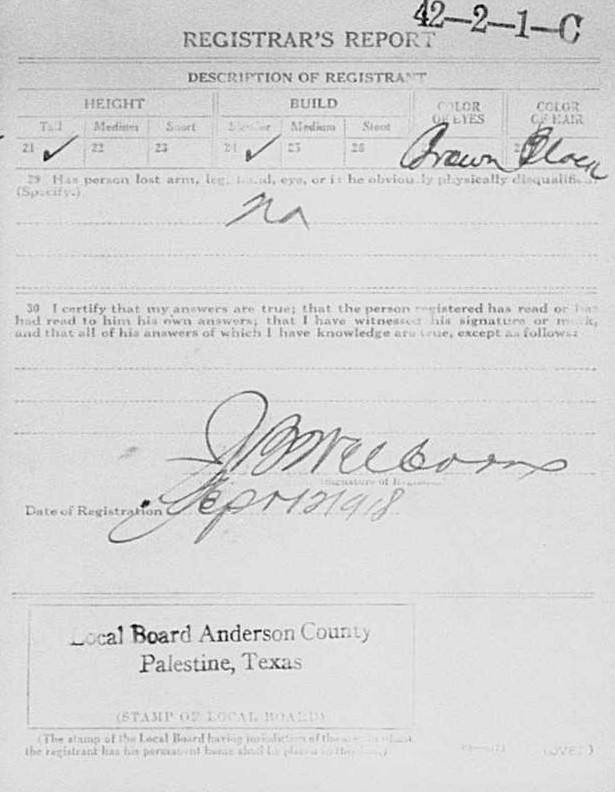 42-2-1-C
REGISTRAR'S REPORT
DESCRIPTION OF REGISTRANT
HEIGHT BUILD COLOR OF EYES COLOR OF HAIR
Tall Medium Short Slender Medium Stout
21 ✓ 22 23 24 ✓ 25 26 Brown
29 Has person lost arm, leg, hand, eye, or is he obviously physically disqualified?
(Specify.)
No
30 I certify that my answers are true; that the person registered has read or has
had read to him his own answers; that I have witnessed his signature or mark,
and that all of his answers of which I have knowledge are true, except as follows:
(Signature of Registrar)
Date of Registration Sept 12 1918
Local Board Anderson County
Palestine, Texas
(STAMP OF LOCAL BOARD)
(The stamp of the Local Board having jurisdiction of the area in which
the registrant has his permanent home shall be placed in this box.)
(OVER)